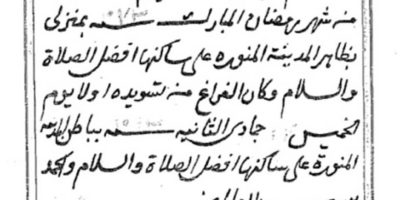 منه شهر رمضان المبارك سنه ١٠٧٣ بمنزلى
بظاهر المدينة المنوره على ساكنها افضل الصلاة
والسلام وكان الفراغ منه تسويده اولا يوم
الخميس جمادى الثانيه سنه بباطن المدينه
المنورة على ساكنها افضل الصلاة والسلام والحمد